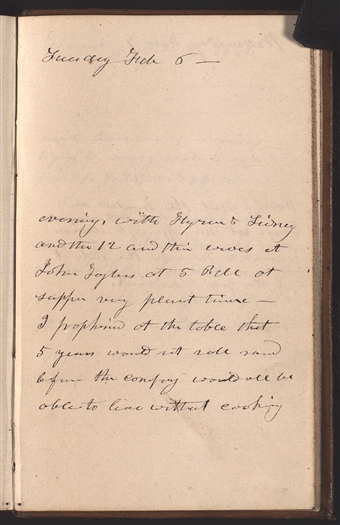 Tuesday Feb 6 —
evening, with Hyrum & Sidney
and the 12 and their wives at
John Taylors at 5 P.M. at
supper very plesnt time —
I prophsied at the table that
5 years would not roll round
before the company would all be
able to live without cooking